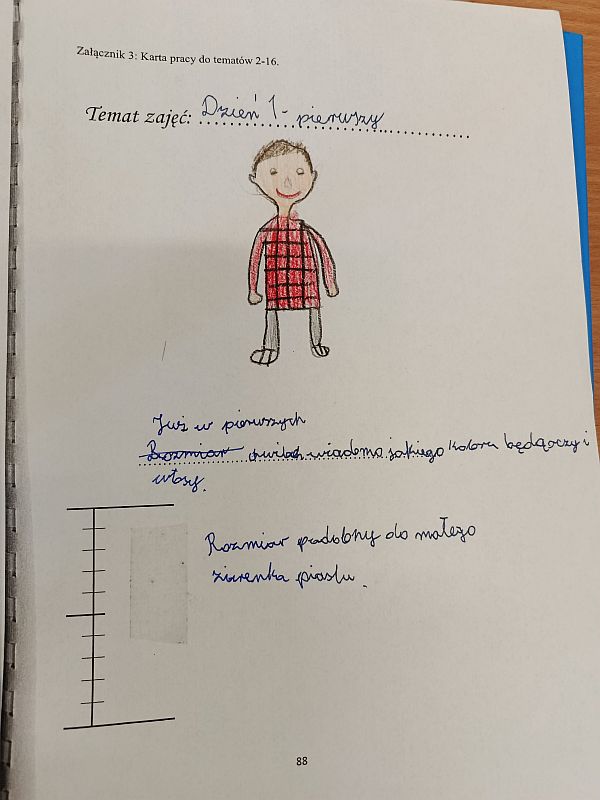 Załącznik 3: Karta pracy do tematów 2-16.
Temat zajęć: Dzień 1 - pierwszy
Już w pierwszych
Rozmiar chwilach wiadomo jakiego koloru będą oczy i
włosy.
Rozmiar podobny do małego
ziarenka piasku.
88